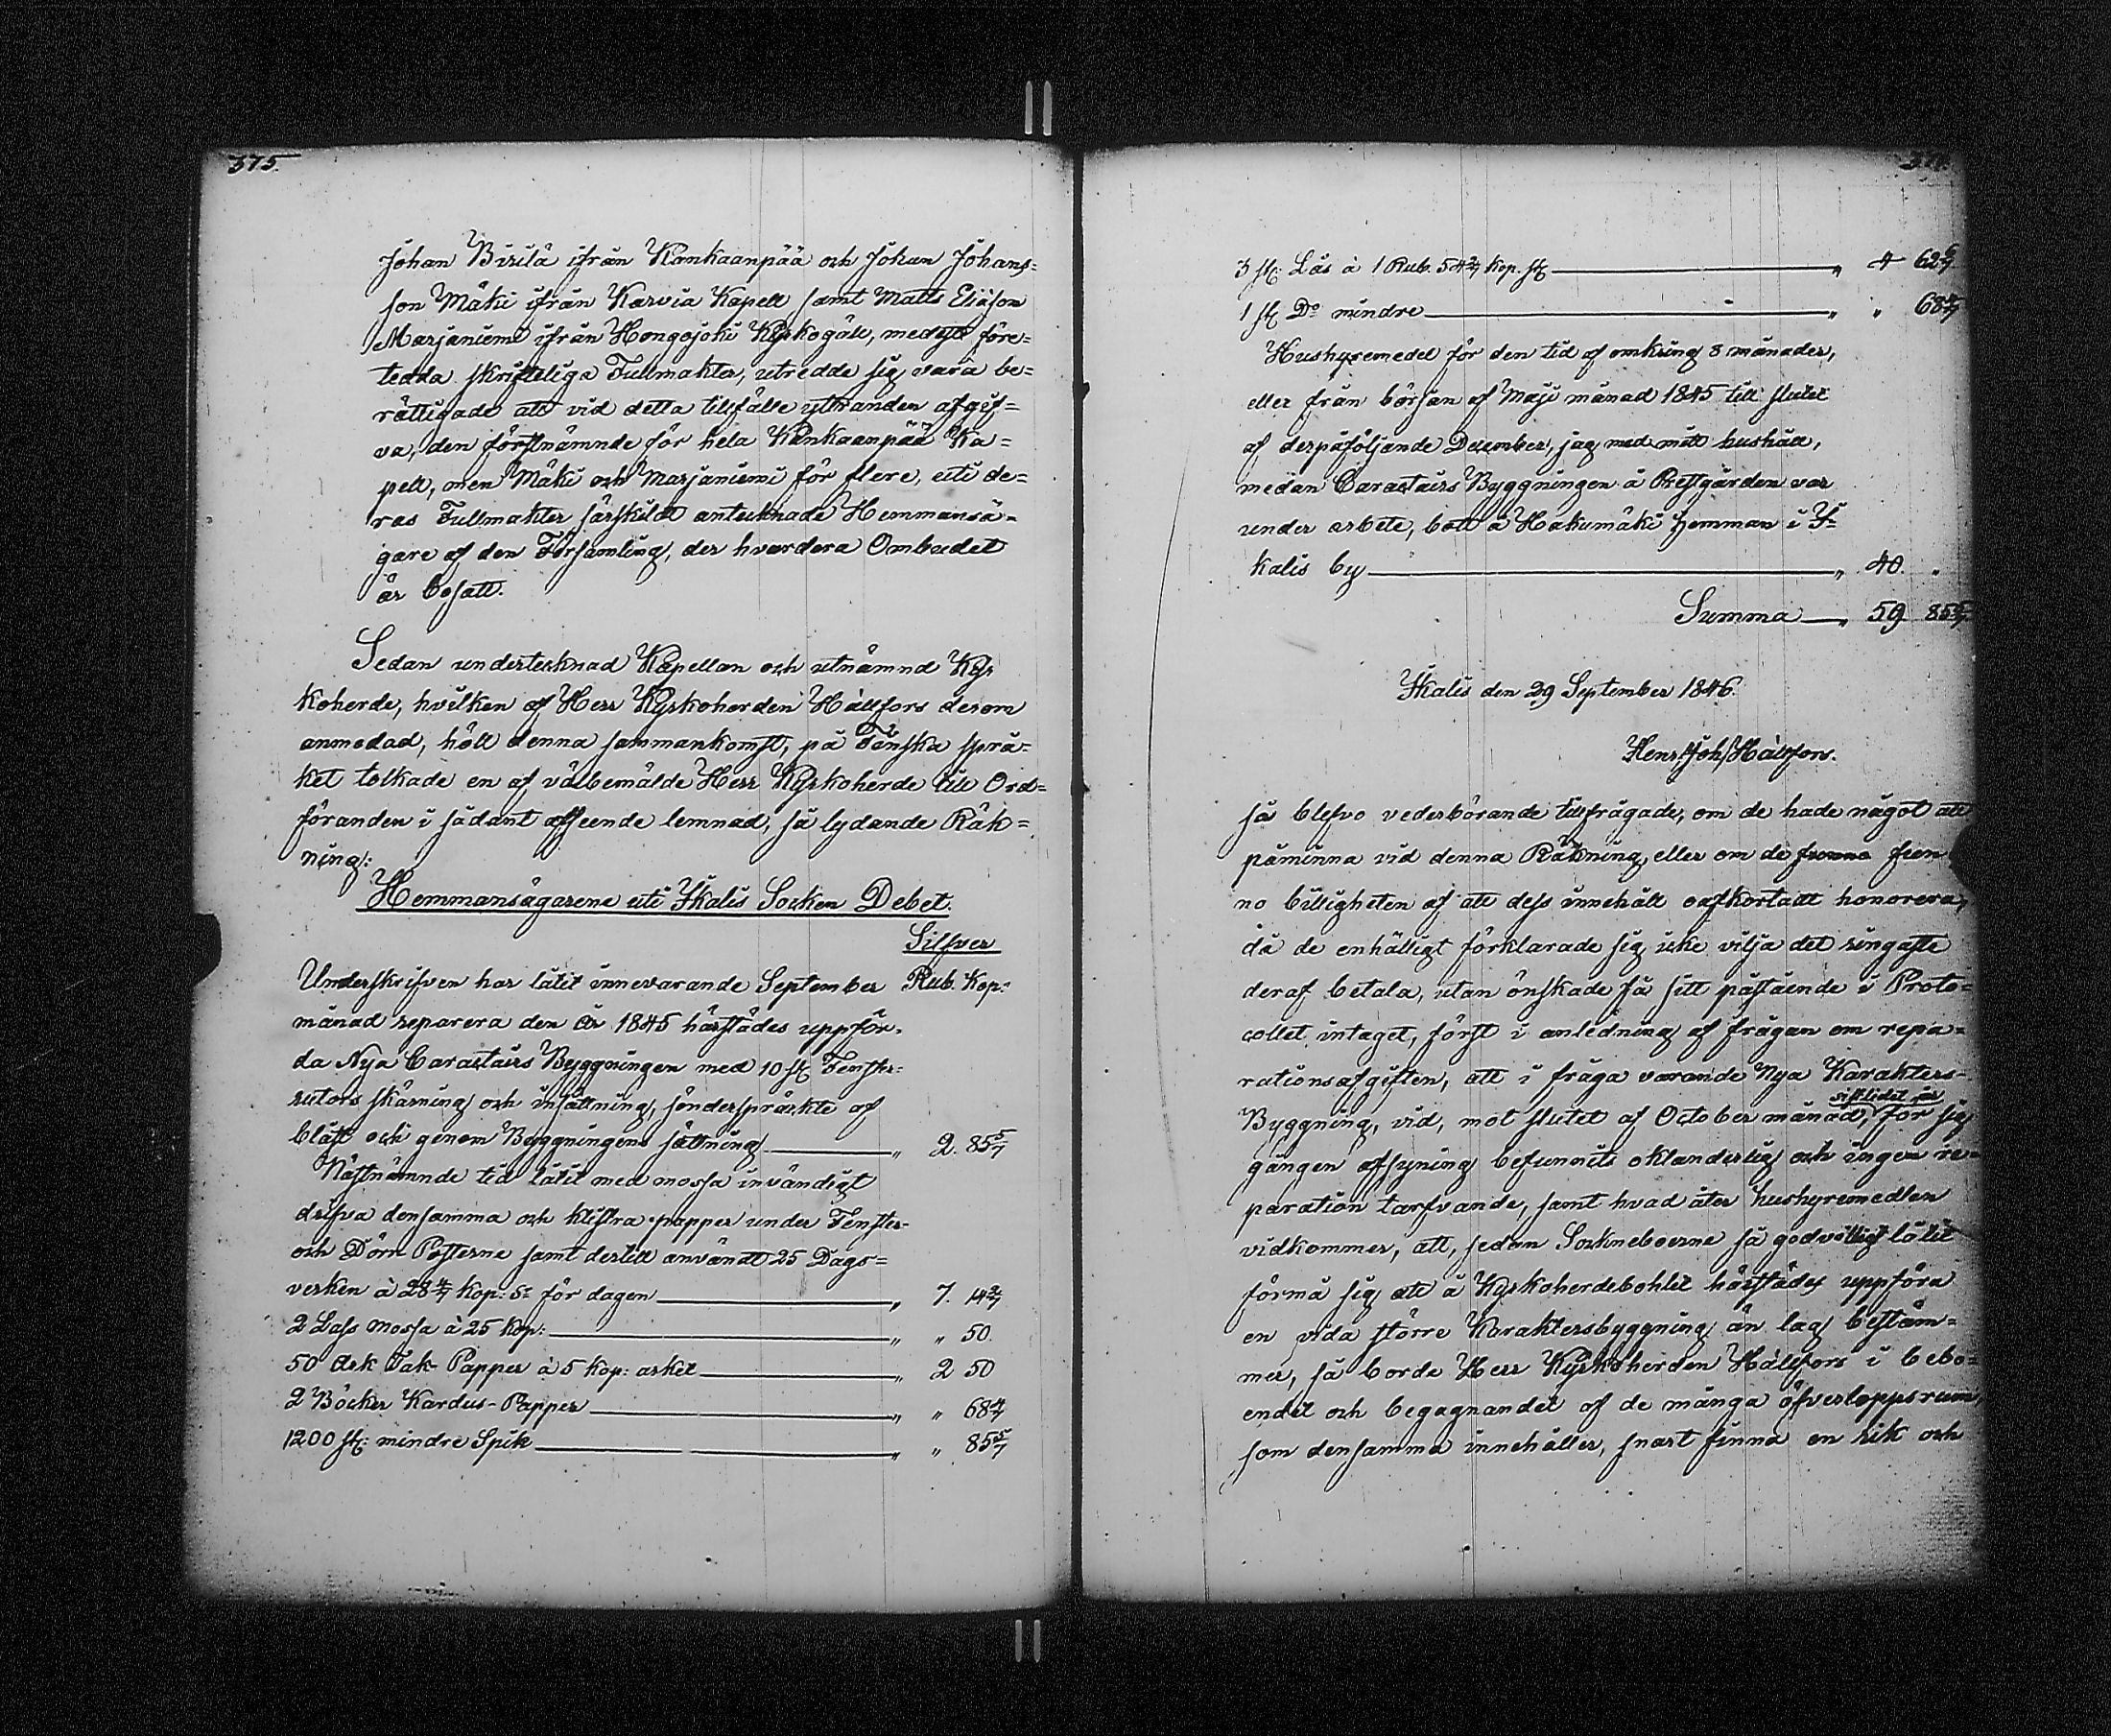 375.
Johan Birilä ifrån Kankaanpää och Johan Johans=
son Mäki ifrån Karvia Kapell samt Matts Eliäson
Marjaniemi ifrån Hongojoki Kyrkogäll, medelst före=
tedda skrifteliga Fullmakter, utredde sig vara be=
rättigade att vid detta tillfälle yttranden afgif=
va, den förstnämnde för hela Kankaanpää Ka=
pell, men Mäki och Marjaniemi för flere, uti de=
ras Fullmakter särskildt antecknade Hemmansä=
gare af den Församling, der hvardera Ombudet
är bosatt.
Sedan undertecknad Kapellan och utnämnd Kyr
koherde, hvilken af Herr Kyrkoherden Hällfors derom
anmodad, höll denna sammankomst, på Finska språ=
ket tolkade en af välbemälde Herr Kyrkoherde till Ord=
föranden i sådant afseende lemnad, så lydande Räk=
ning:
Hemmansägarene uti Ikalis Socken Debet.
Silfver
Underskrifven har låtit innevarande September Rub. Kop:
månad reparera den År 1845 härstädes uppför=
da Nya Caractairs Byggningen med 10 st Fenster=
rutors skärning och insättning, sönderspräckte af
blåst och genom Byggningens sättning „ 2. 85 5/7
Nästnämnde tid låtit med mossa invändigt
drifva densamma och klistra papper under Fenster=
och Dörr Posterne samt dertill användt 25 Dags=
verken à 28 4/7 Kop: Sr för dagen „ 7. 14 2/7
2 Lass mossa à 25 Kop: „ „ 50.
50 Ark Tak-Papper à 5 Kop: arket „ 2 50
2 Böcker Kardus-Papper „ „ 68 4/7
1200 st: mindre Spik „ „ 85 5/7
3 st: Lås à 1 Rub. 54 2/7 Kop. st „ 4 62 6/7
1 st Do mindre „ „ 68 4/7
Hushyremedel för den tid af omkring 8 månader,
eller från början af Maji månad 1845 till slutet
af derpåföljande December, jag med mitt hushåll,
medan Caractairs Byggningen å Prestgården var
under arbete, bott å Hakumäki hemman i I=
kalis by „ 40. „
Summa „ 59 85 5/7
Ikalis den 29 September 1846.
Henr. Joh. Hällfors.
så blefvo vederbörande tillfrågade, om de hade något att
påminna vid denna Räkning, eller om de funno fun
no billigheten af att dess innehåll oafkortadt honorera,
då de enhälligt förklarade sig icke vilja det ringaste
deraf betala, utan önskade få sitt påstående i Proto=
collet intaget, först i anledning af frågan om repa=
rationsafgiften, att i fråga varande Nya Karakters=
Byggning, vid, mot slutet af October månad, sistlidit år för sig
gången afsyning befunnits oklanderlig och ingen re=
paration tarfvande, samt hvad åter hushyremedlen
vidkommer, att, sedan Sockneboerne så godvilligt låtit
förmå sig att å Kyrkoherdebohlet härstädes uppföra
en vida större Karaktersbyggning än lag bestäm=
mer, så borde Herr Kyrkoherden Hällfors i bebo=
endet och begagnandet af de många öfverloppsrum,
som densamma innehåller, snart finna en rik och